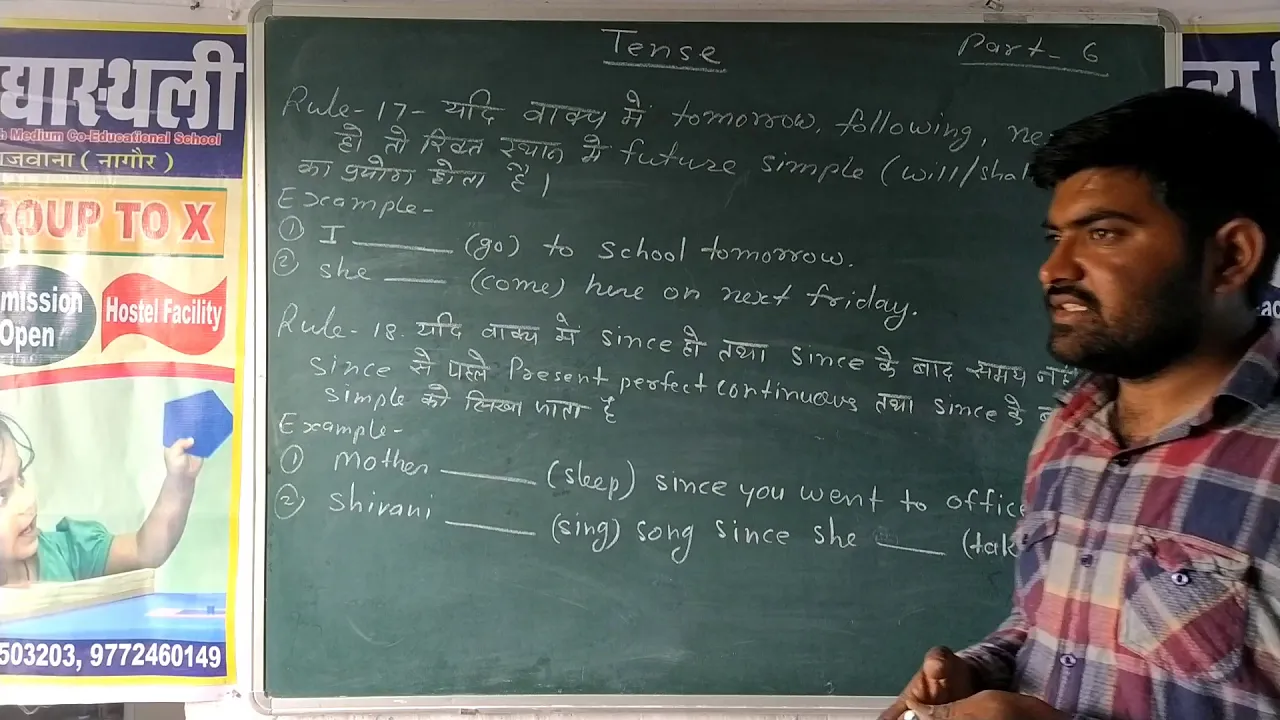 Tense
Part-6
Rule-17- यदि वाक्य में tomorrow, following,
हो तो रिक्त स्थान में future simple (will/shal
का प्रयोग होता है।
Example-
① I ______ (go) to school tomorrow.
② she ____ (come) here on next friday.
Rule-18. यदि वाक्य में since हो तथा since के बाद समय
since से पहले Present perfect continuous तथा since के
simple को लिखा जाता है
Example-
① Mother ______ (sleep) since you went to office
② Shivani ______ (sing) song since she ____ (tak
द्यास्थली
h Medium Co-Educational School
जवाना (नागौर)
ROUP TO X
mission
Open
Hostel Facility
503203, 9772460149